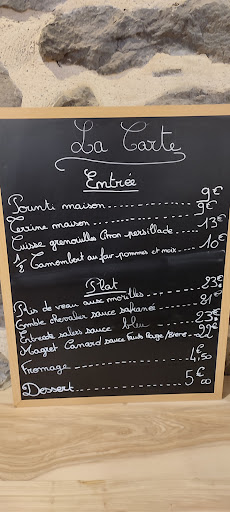 La Carte
Entrée
Pounti maison 9€
Terrine maison 9€
Cuisse grenouilles Citron persillade 13€
1/2 Camembert au four pommes et noix 10€
Plat
Ris de veau aux morilles 23€
Omble chevalier sauce safranée 21€
Entrecote salers sauce bleu 23€
Magret Canard sauce fruits Rouge/Biere 22€
Fromage 4€,50
Dessert 5€00